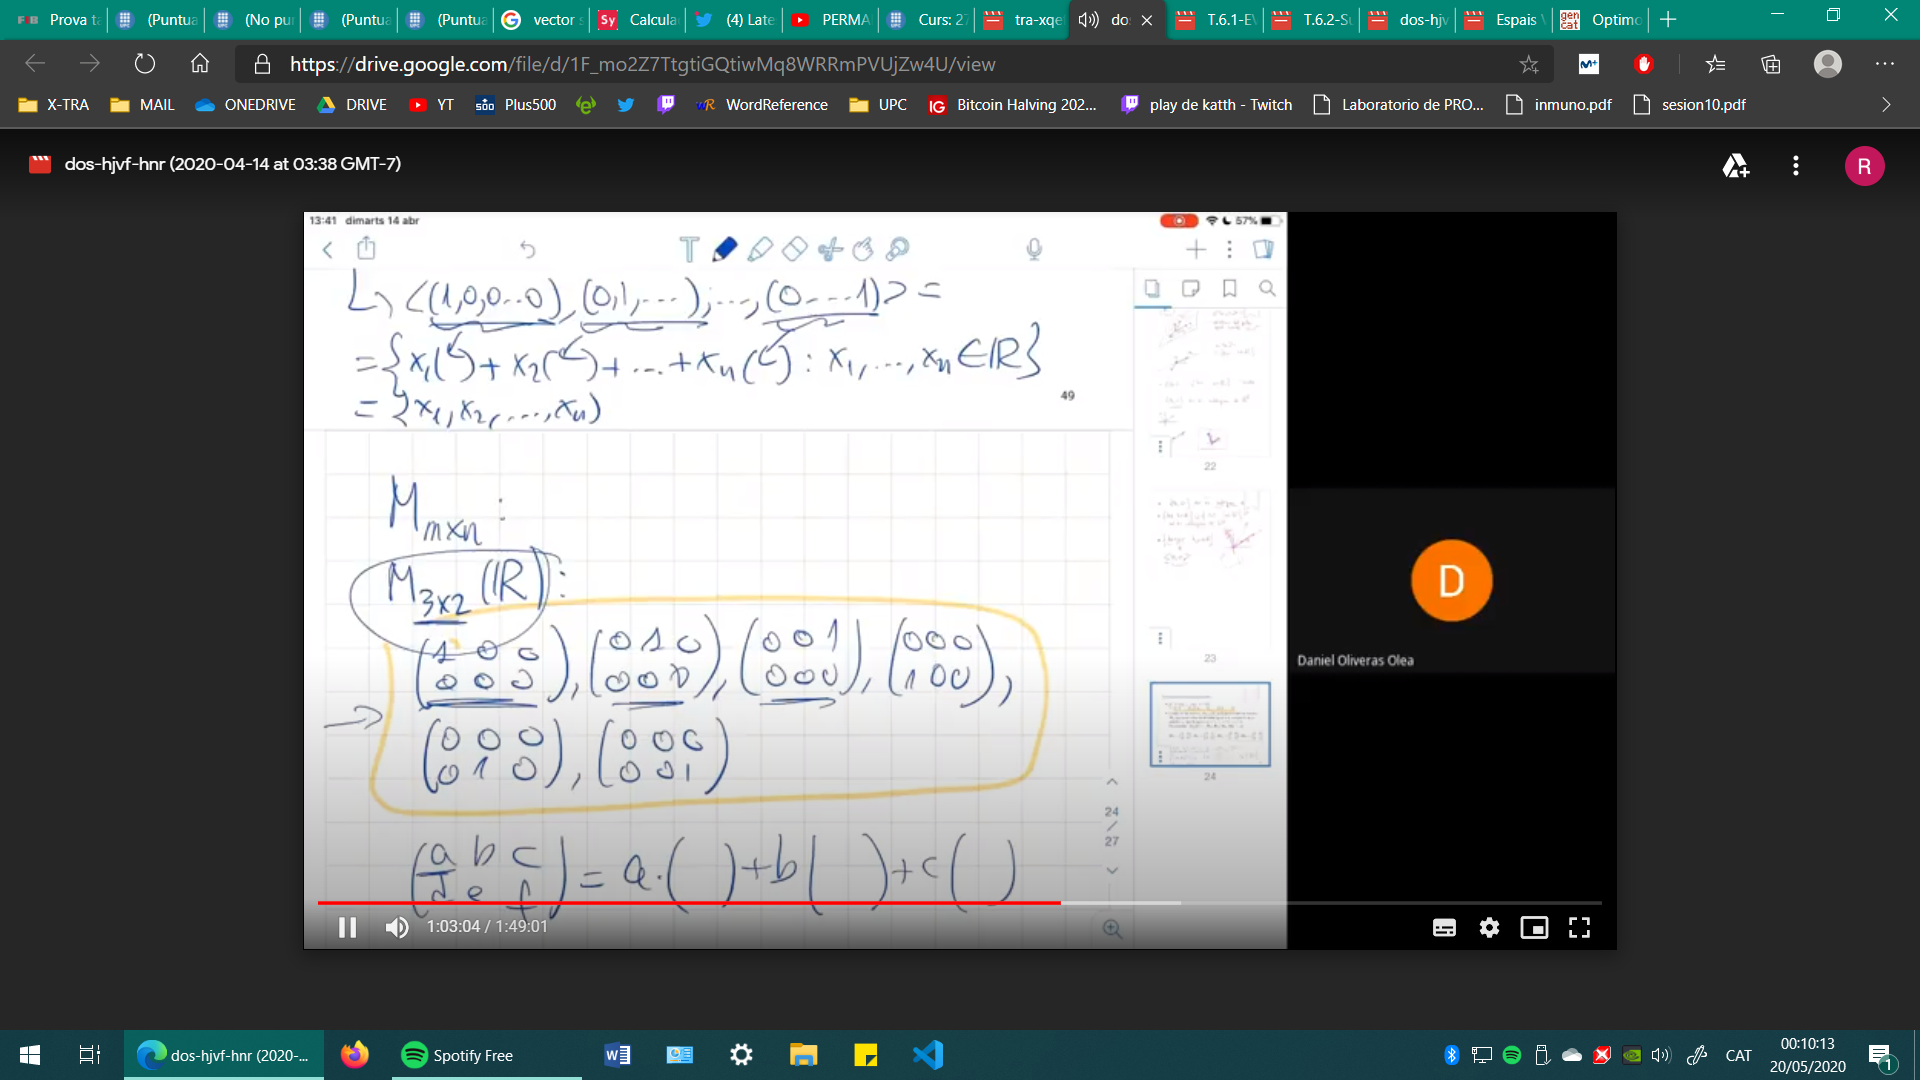 Prova ta
(Puntua
(No pu
(Puntua
(Puntua
vector s
Calcula
(4) Late
PERMA
Curs: 27
tra-xqe
do
T.6.1-E
T.6.2-Su
dos-hjv
Espais
Optimo
https://drive.google.com/file/d/1F_mo2Z7TtgtiGQtiwMq8WRRmPVUjZw4U/view
X-TRA
MAIL
ONEDRIVE
DRIVE
YT
Plus500
WordReference
UPC
Bitcoin Halving 202...
play de katth - Twitch
Laboratorio de PRO...
inmuno.pdf
sesion10.pdf
dos-hjvf-hnr (2020-04-14 at 03:38 GMT-7)
R
13:41 dimarts 14 abr
57%
↳ <(1,0,0...0), (0,1,...),..., (0...1)> =
= {x₁( ) + x₂( ) + ... + xₙ( ) : x₁,..., xₙ ∈ ℝ}
= {x₁, x₂,..., xₙ)
49
M m×n :
M 3×2 (ℝ) :
(1 0 0 / 0 0 0), (0 1 0 / 0 0 0), (0 0 1 / 0 0 0), (0 0 0 / 1 0 0),
→ (0 0 0 / 0 1 0), (0 0 0 / 0 0 1)
(a b c / d e f) = a·( ) + b( ) + c( )
22
23
24
24
/
27
D
Daniel Oliveras Olea
1:03:04 / 1:49:01
dos-hjvf-hnr (2020-...
Spotify Free
CAT
00:10:13
20/05/2020
1